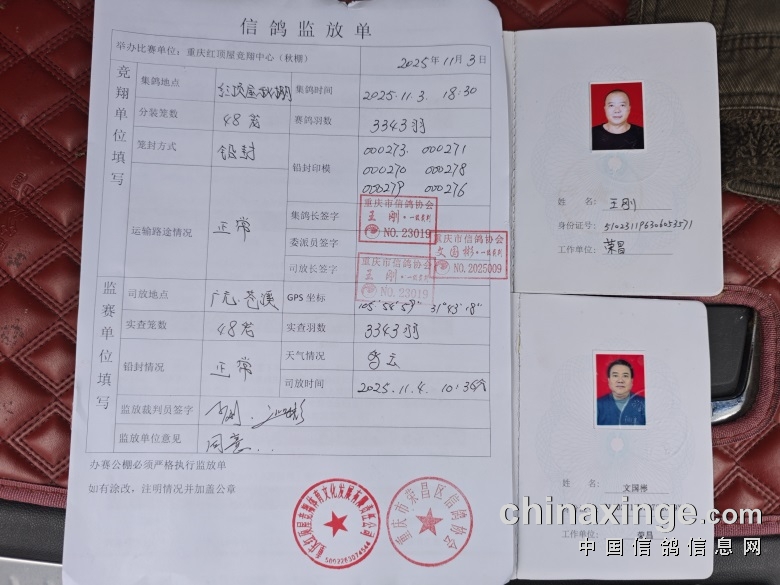 信鸽监放单
举办比赛单位：重庆红顶屋竞翔中心（秋棚） 2025年11月3日
竞翔单位填写
集鸽地点 红顶屋秋棚 集鸽时间 2025.11.3. 18:30
分装笼数 48笼 赛鸽羽数 3343羽
笼封方式 铅封 铅封印模 000273. 000271
000270 000278
000279 000276
运输路途情况 正常 集鸽长签字
委派员签字
司放长签字
重庆市信鸽协会
王刚·一级裁判
NO.23019
重庆市信鸽协会
文国彬·一级裁判
NO.2025009
重庆市信鸽协会
王刚·一级裁判
NO.23019
监赛单位填写
司放地点 广元 苍溪 GPS 坐标 105°54'59" 31°43'18"
实查笼数 48笼 实查羽数 3343羽
铅封情况 正常 天气情况 多云
司放时间 2025.11.4. 10:36分
监放裁判员签字
监放单位意见 同意
办赛公棚必须严格执行监放单
如有涂改，注明情况并加盖公章
5003263074544
重庆市荣昌区信鸽协会
姓 名： 王刚
身份证号： 510231196306053571
工作单位： 荣昌
姓 名： 文国彬
工作单位： 荣昌
chinaxinge.com
中国信鸽信息网